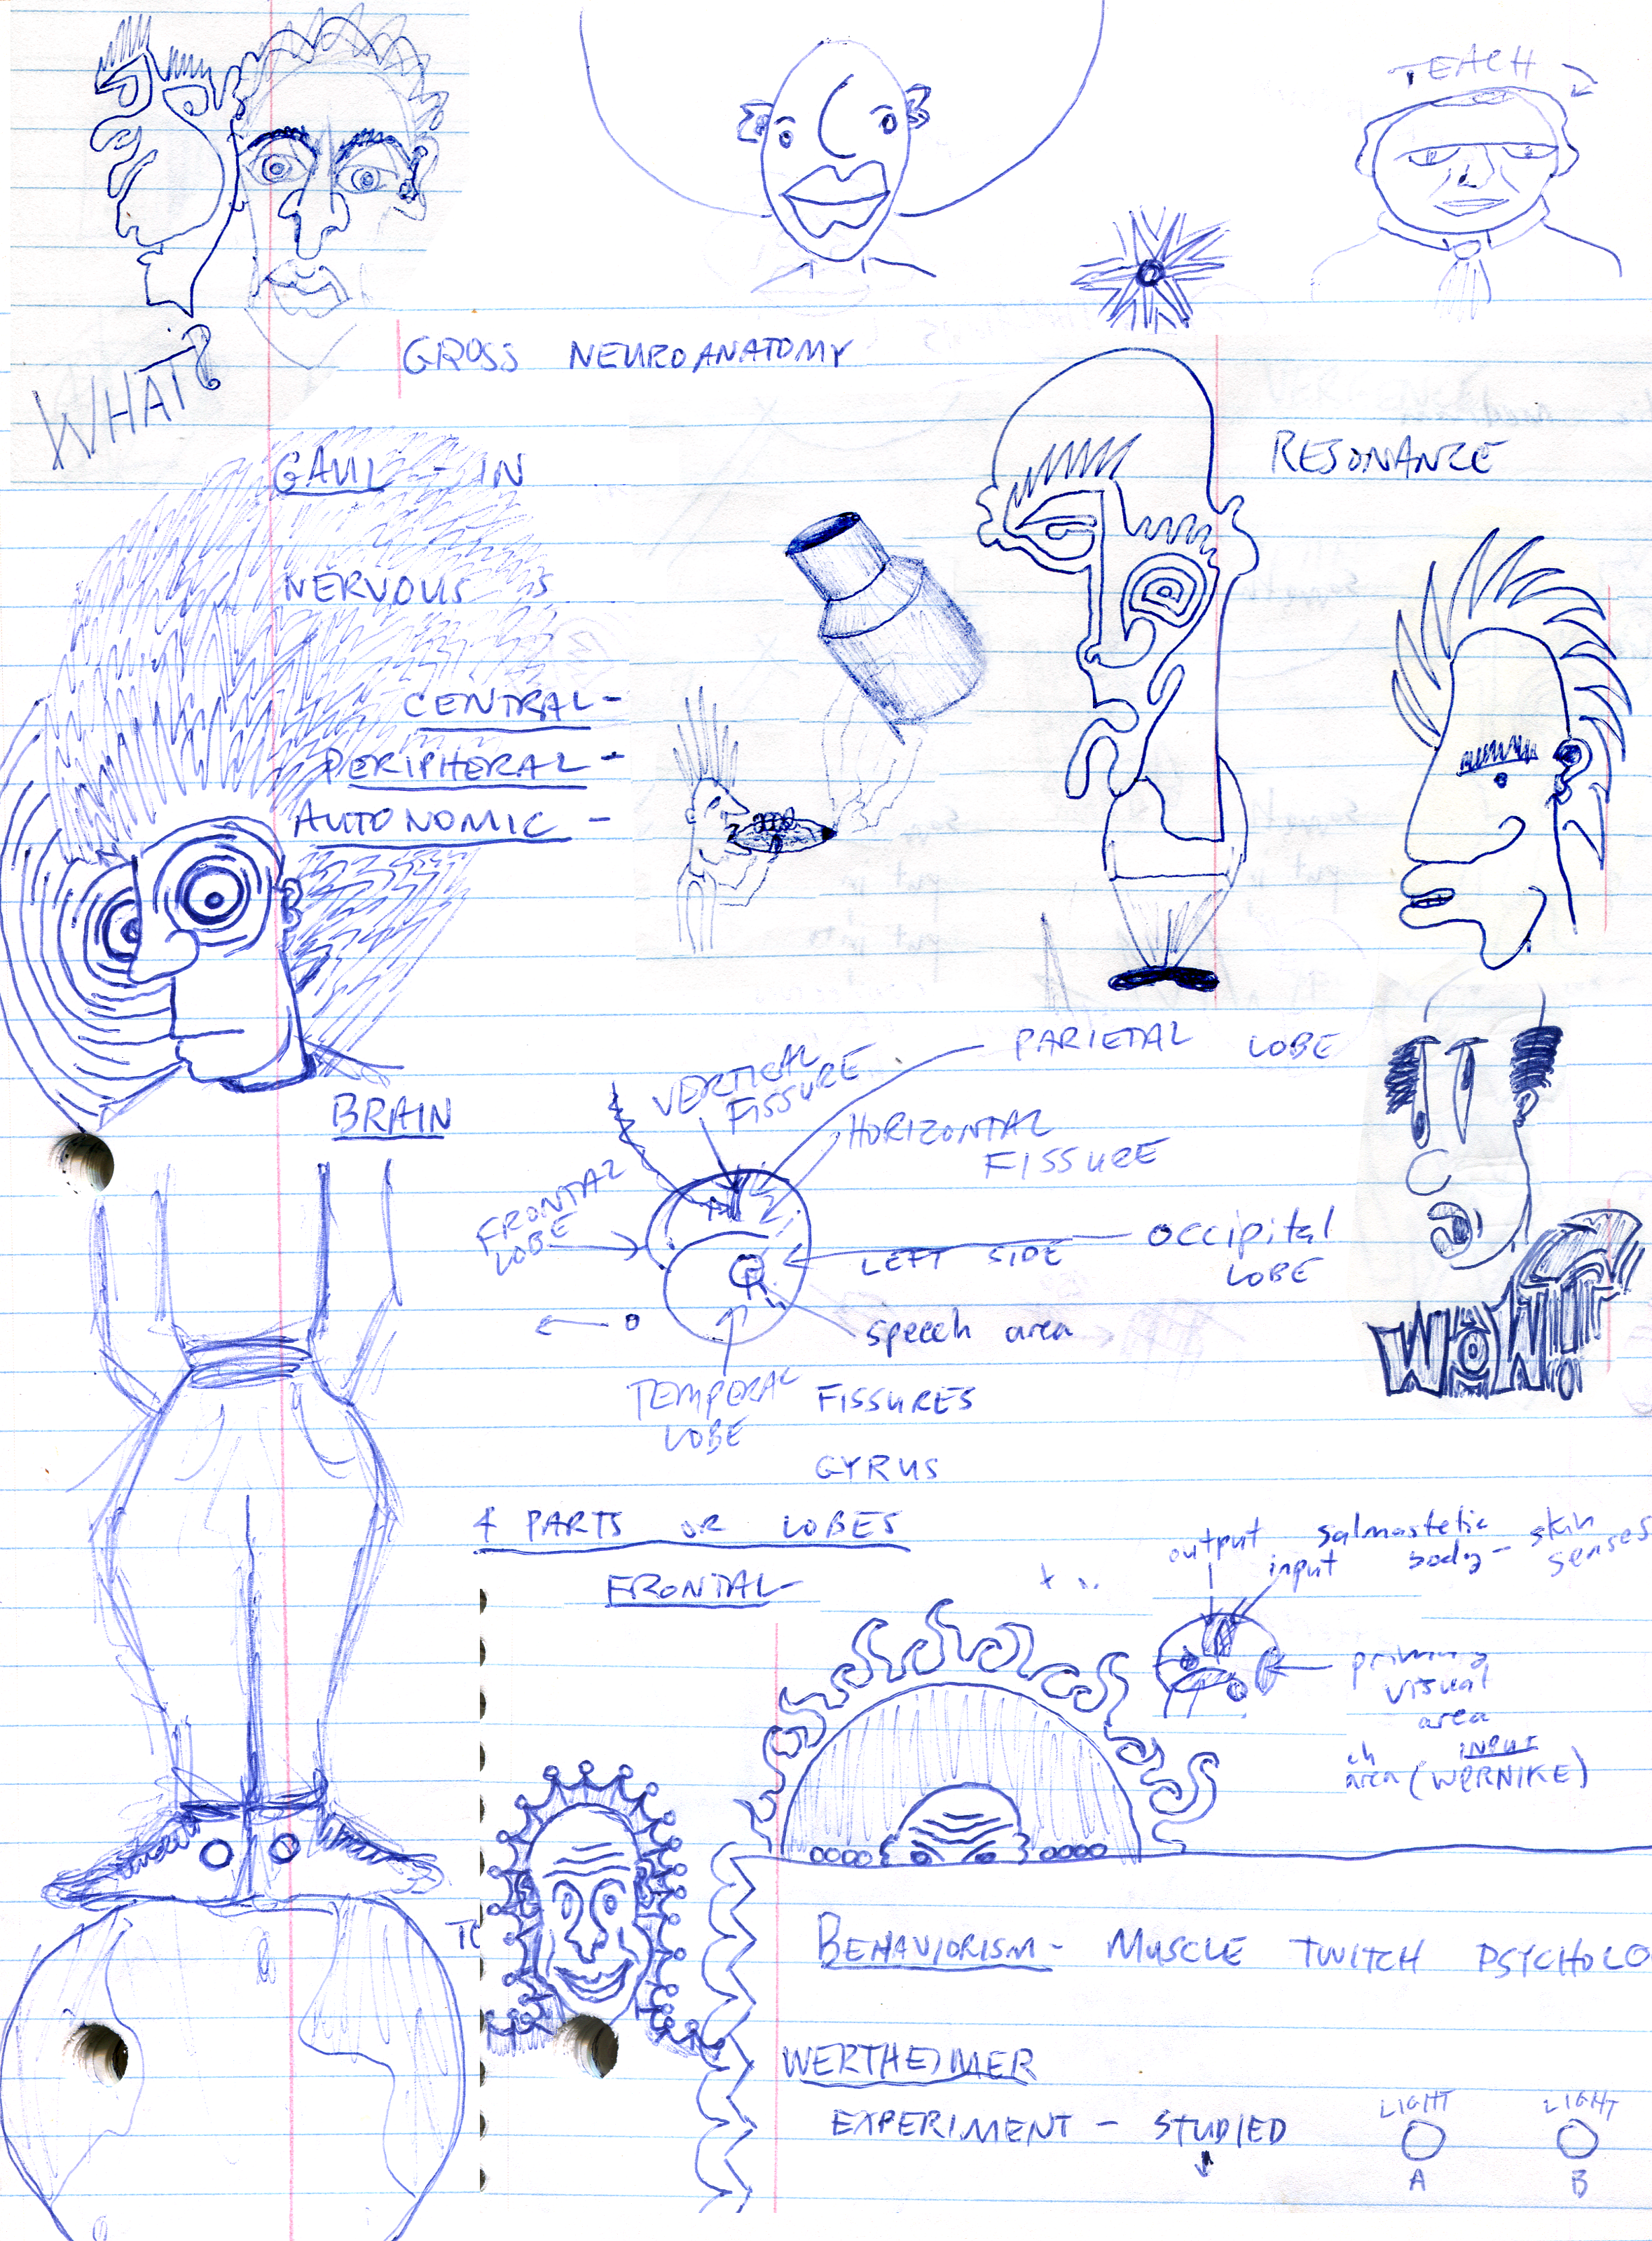 TEACH
WHAT?
GROSS NEUROANATOMY
RESONANZE
GAUL - IN
NERVOUS
CENTRAL -
PERIPHERAL -
AUTONOMIC -
PARIETAL LOBE
VERTICAL
FISSURE
BRAIN
HORIZONTAL
FISSURE
FRONTAL
LOBE
LEFT SIDE
OCCIPITAL
LOBE
speech area
WOW!!
TEMPERAL
LOBE
FISSURES
GYRUS
4 PARTS OR LOBES
FRONTAL -
output
input
salmastetic
body - skin
senses
primary
visual
area
INPUT
area (WERNIKE)
BEHAVIORISM - MUSCLE TWITCH PSYCHOLO
WERTHEIMER
EXPERIMENT - STUDIED
LIGHT
A
LIGHT
B